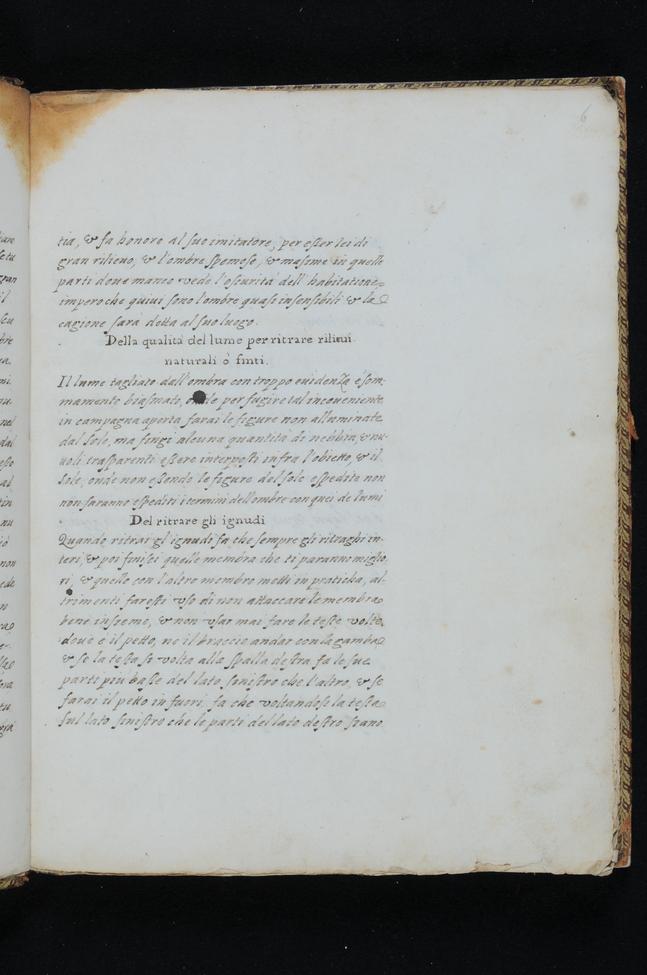 6
tia, & fa honore al suo imitatore, per esser lei di
gran rilievo, & l'ombre spemose, & masime in quelle
parti dove manco vede l'oscurità dell' habitatione,
impero che quivi sono l'ombre quasi insensibili & la
cagione sarà detta al suo luogo.
Della qualità del lume per ritrare rilivui
naturali ò finti.
Il lume tagliato dall'ombra con troppo evidenza è som-
mamente biasmato, per fugire tal inconveniente
in campagna aperta farai le figure non alluminate
dal sole, ma fingi alcuna quantità di nebbia, ò nu-
voli trasparenti essere interposti infra l'obietto, & il
sole, onde non essendo le figure del sole espedite non
non saranno espediti i termini dell'ombre con quei de lumi
Del ritrare gli ignudi
Quando ritrai gl'ignudi fa che sempre gli ritraghi in-
teri, & poi finisci quelle membra che ti paranno miglio
ri, & quelle con l'altre membre metti in praticha, al-
trimenti faresti uso di non attaccare le membra
bene insieme, & non usar mai fare le teste volte
dove è il petto, ne il braccio andar con la gamba
& se la testa si volta alla spalla destra fa le sue
parti più basse del lato sinistro che l'altro, & se
farai il petto in fuori, fa che voltandose la testa
sul lato sinistro che le parti del lato destro siano